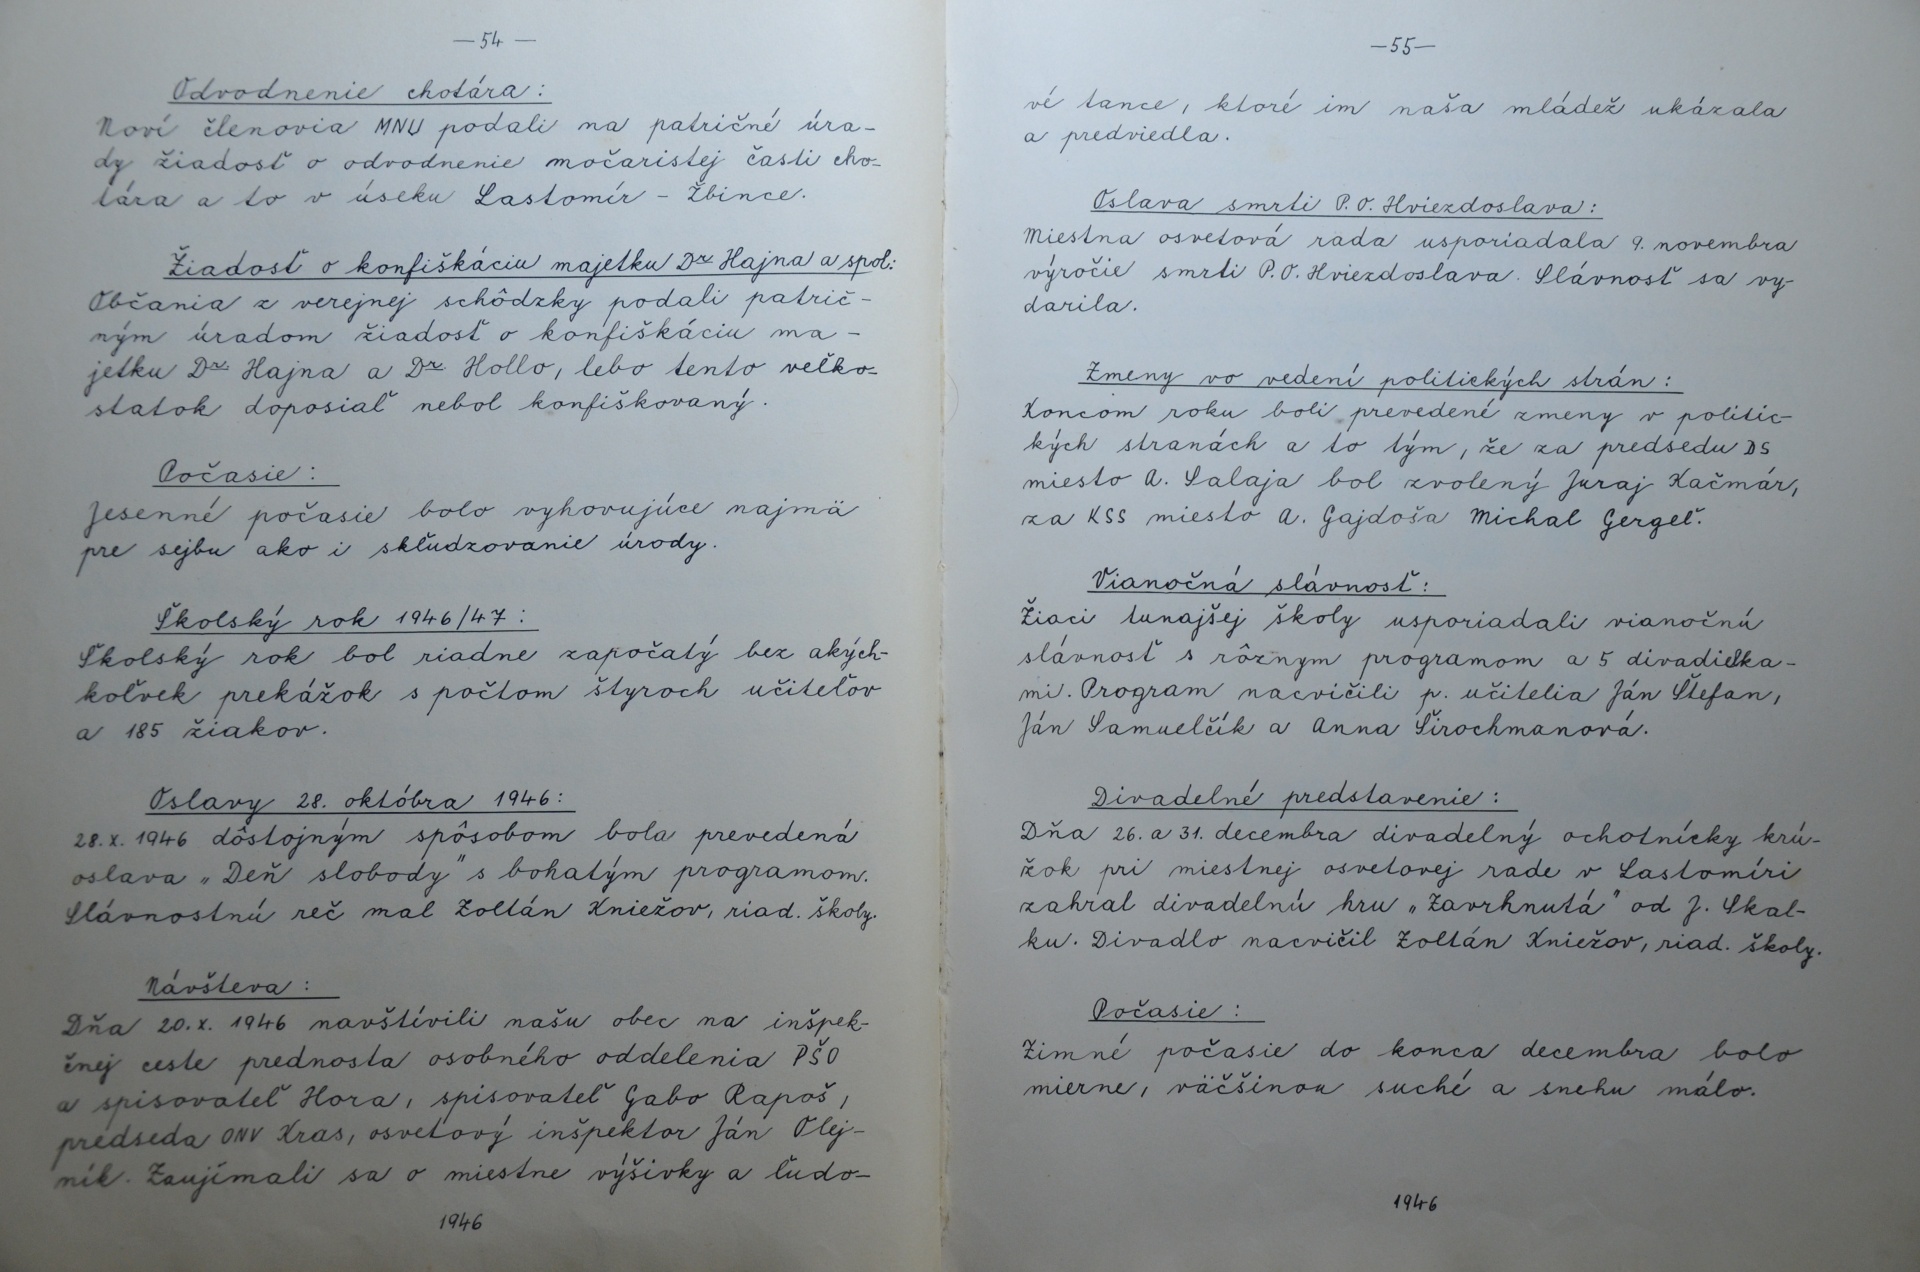 — 54 —
Odvodnenie chotára :
Noví členovia MNV podali na patričné úra-
dy žiadosť o odvodnenie močaristej časti cho-
tára a to v úseku Lastomír - Žbince.
Žiadosť o konfiškáciu majetku Dr Hajna a spol:
Občania z verejnej schôdzky podali patrič-
ným úradom žiadosť o konfiškáciu ma-
jetku Dr. Hajna a Dr Hollo, lebo tento veľko-
statok doposiaľ nebol konfiškovaný.
Počasie :
Jesenné počasie bolo vyhovujúce najmä
pre sejbu ako i skľudzovanie úrody.
Školský rok 1946/47 :
Školský rok bol riadne započatý bez akých-
koľvek prekážok s počtom štyroch učiteľov
a 185 žiakov.
Oslavy 28. októbra 1946 :
28. X. 1946 dôstojným spôsobom bola prevedená
oslava „Deň slobody" s bohatým programom.
Slávnostnú reč mal Zoltán Kniežov, riad. školy.
Návšteva :
Dňa 20. X. 1946 navštívili našu obec na inšpek-
čnej ceste prednosta osobného oddelenia PŠO
a spisovateľ Hora, spisovateľ Gabo Rapoš,
predseda ONV Kras, osvetový inšpektor Ján Olej-
ník. Zaujímali sa o miestne výšivky a ľudo-
1946
—55—
vé tance, ktoré im naša mládež ukázala
a predviedla.
Oslava smrti P. O. Hviezdoslava :
Miestna osvetová rada usporiadala 9. novembra
výročie smrti P. O. Hviezdoslava. Slávnosť sa vy-
darila.
Zmeny vo vedení politických strán :
Koncom roku boli prevedené zmeny v politic-
kých stranách a to tým, že za predsedu DS
miesto A. Salaja bol zvolený Juraj Kačmár,
za KSS miesto A. Gajdoša Michal Gergeľ.
Vianočná slávnosť :
Žiaci tunajšej školy usporiadali vianočnú
slávnosť s rôznym programom a 5 divadielka-
mi. Program nacvičili p. učitelia Ján Štefan,
Ján Samuelčík a Anna Širochmanová.
Divadelné predstavenie :
Dňa 26. a 31. decembra divadelný ochotnícky krú-
žok pri miestnej osvetovej rade v Lastomíri
zahral divadelnú hru „Zavrhnutá" od J. Skal-
ku. Divadlo nacvičil Zoltán Kniežov, riad. školy.
Počasie :
Zimné počasie do konca decembra bolo
mierne, väčšinou suché a snehu málo.
1946